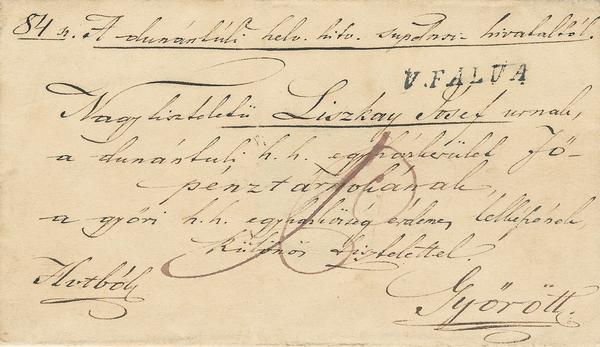 84 sz. A dunántúli helv. hitv. superint. hivataltól.
V. FALVA
Nagytiszteletű Liszkay József urnak,
a dunántuli h. h. egyházkerület Fő-
pénztárnokának,
a győri h. h. egyházközség érdemes lelkészének
különös tisztelettel.
Hivatból
Győrött.